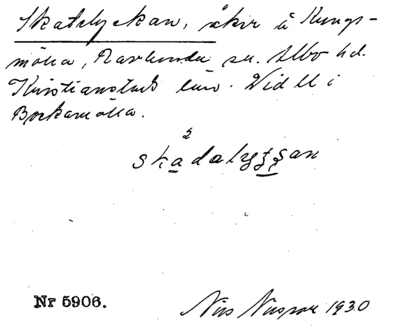 Skatelyckan, åker å Kungs-
mölla, Ravlunda sn. Albo hd.
Kristianstads län. Vid ll i
Borkamölla.
2
skadalyʒʒan
Nr 5906.
Nils 1930